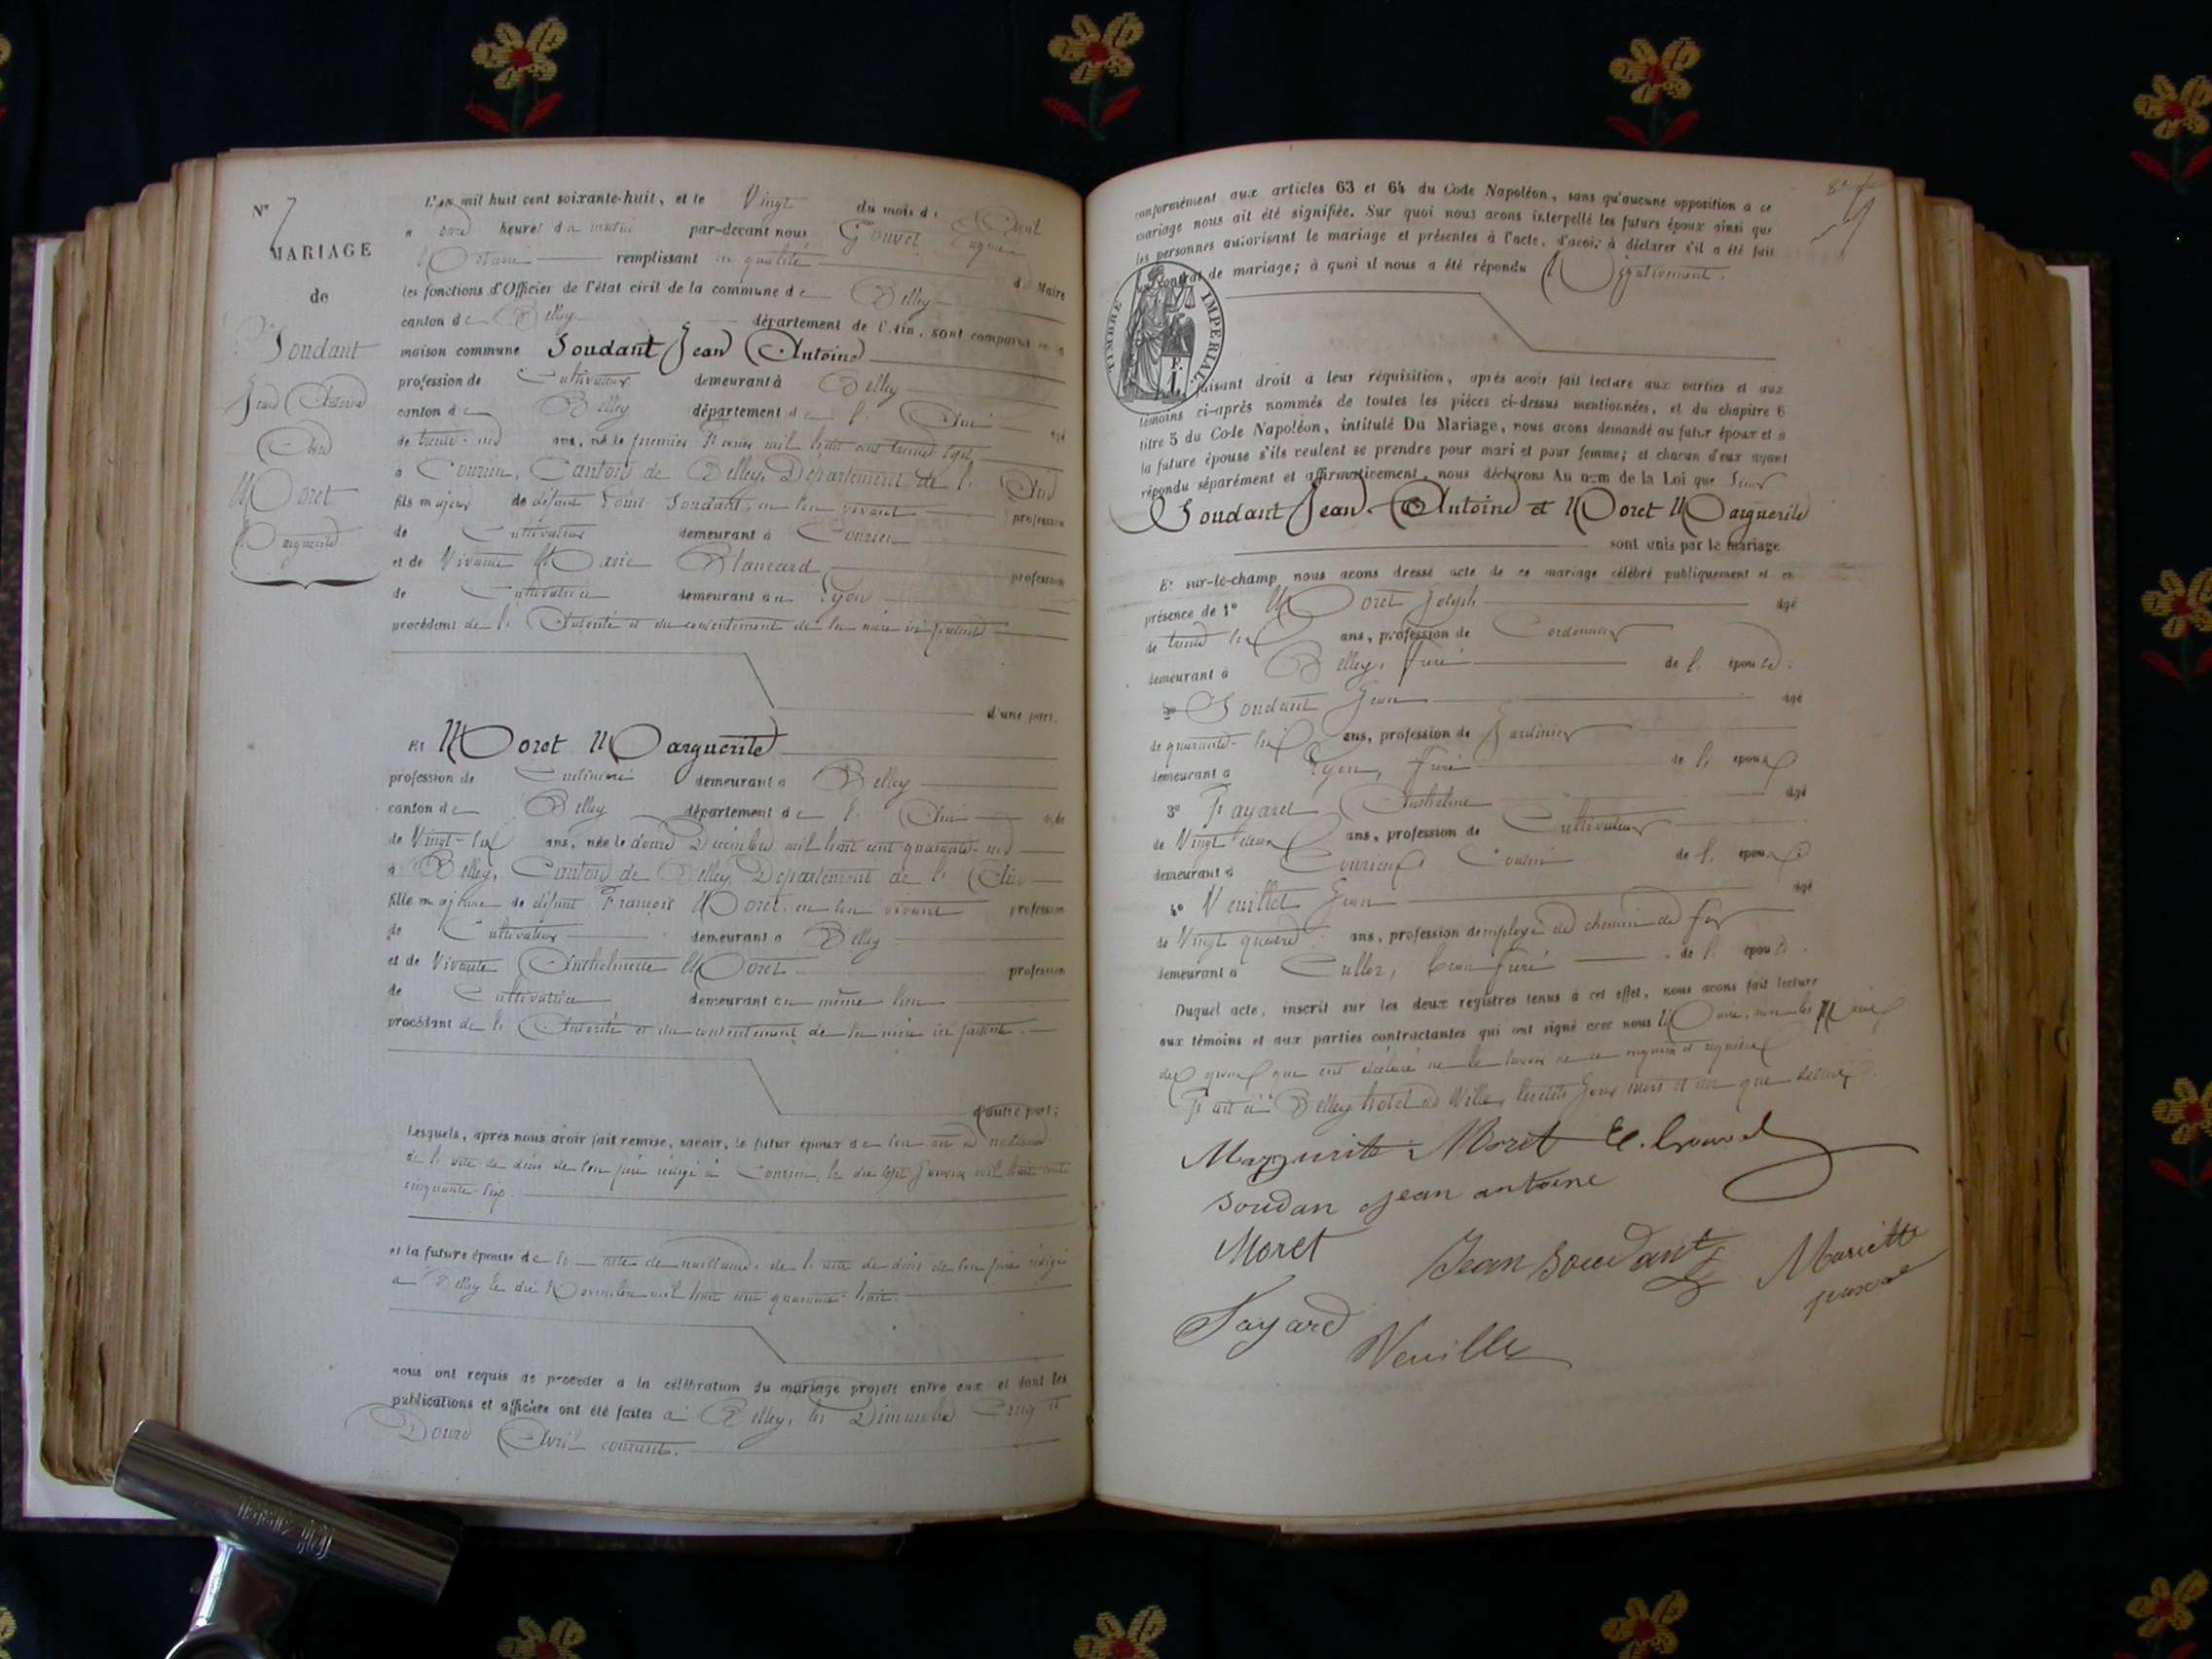 N° 7
MARIAGE
de
Soudant
Jean Antoine
Avec
Moret
Marguerite
L'an mil huit cent soixante-huit, et le Vingt du mois d'Avril
à onze heures du matin par-devant nous Gouvet Eugène
Notaire remplissant en qualité d Maire
les fonctions d'Officier de l'état civil de la commune de Belley
canton de Belley département de l'Ain, sont comparus en la
maison commune Soudant Jean Antoine
profession de Cultivateur demeurant à Belley
canton de Belley département de l'Ain âgé
de trente-un ans, né le premier Février mil huit cent trente sept
à Couzieu, Canton de Belley, Département de l'Ain
fils majeur de défunt Louis Soudant, en son vivant profession
de Cultivateur demeurant à Couzieu
et de Vivante Marie Blancard profession
de Cultivatrice demeurant à Lyon
procédant de l'Autorité et du consentement de sa mère ici présente
d'une part,
Et Moret Marguerite
profession de Cuisinière demeurant à Belley
canton de Belley département de l'Ain âgée
de Vingt-six ans, née le douze Décembre mil huit cent quarante-un
à Belley, Canton de Belley, Département de l'Ain
fille majeure de défunt François Moret, en son vivant profession
de Cultivateur demeurant à Belley
et de Vivante Anthelmette Moret profession
de Cultivatrice demeurant au même lieu
procédant de l'Autorité et du consentement de sa mère ici présente.
d'autre part;
Lesquels, après nous avoir fait remise, savoir, le futur époux de son acte de naissance
de l'acte de décès de son père rédigé à Couzieu, le dix sept Janvier mil huit cent
cinquante-six.
et la future épouse de son acte de naissance, de l'acte de décès de son père rédigé
à Belley le dix Novembre mil huit cent quarante-huit.
nous ont requis de procéder à la célébration du mariage projeté entre eux et dont les
publications et affiches ont été faites à Belley, les Dimanches Cinq et
Douze Avril courant.
conformément aux articles 63 et 64 du Code Napoléon, sans qu'aucune opposition à ce
mariage nous ait été signifiée. Sur quoi nous avons interpellé les futurs époux ainsi que
les personnes autorisant le mariage et présentes à l'acte, d'avoir à déclarer s'il a été fait
contrat de mariage; à quoi il nous a été répondu Négativement.
TIMBRE IMPERIAL
Faisant droit à leur réquisition, après avoir fait lecture aux parties et aux
témoins ci-après nommés de toutes les pièces ci-dessus mentionnées, et du chapitre 6
titre 5 du Code Napoléon, intitulé Du Mariage, nous avons demandé au futur époux et à
la future épouse s'ils veulent se prendre pour mari et pour femme; et chacun d'eux ayant
répondu séparément et affirmativement, nous déclarons Au nom de la Loi que Sieur
Soudant Jean-Antoine et Moret Marguerite
sont unis par le mariage
Et sur-le-champ nous avons dressé acte de ce mariage célébré publiquement et en
présence de 1° Moret Joseph âgé
de trente six ans, profession de Cordonnier
demeurant à Belley, frère de l'épouse.
2° Soudant Jean âgé
de quarante-six ans, profession de Jardinier
demeurant à Lyon, frère de l'époux
3° Fayard Anthelme âgé
de Vingt deux ans, profession de Cultivateur
demeurant à Couzieu Cousin de l'époux
4° Veuillet Jean âgé
de Vingt quatre ans, profession d'employé de chemin de fer
demeurant à Culloz, beau frère de l'épouse.
Duquel acte, inscrit sur les deux registres tenus à cet effet, nous avons fait lecture
aux témoins et aux parties contractantes qui ont signé avec nous Maire, non les Mères
des époux qui ont déclaré ne le savoir de ce enquises et requises
Fait à Belley hôtel de Ville, lesdits jour mois et an que dessus.
Marguerite Moret E. Gouvet
Soudan jean antoine
Moret Jean Soudant Mariette
Fayard Veuille